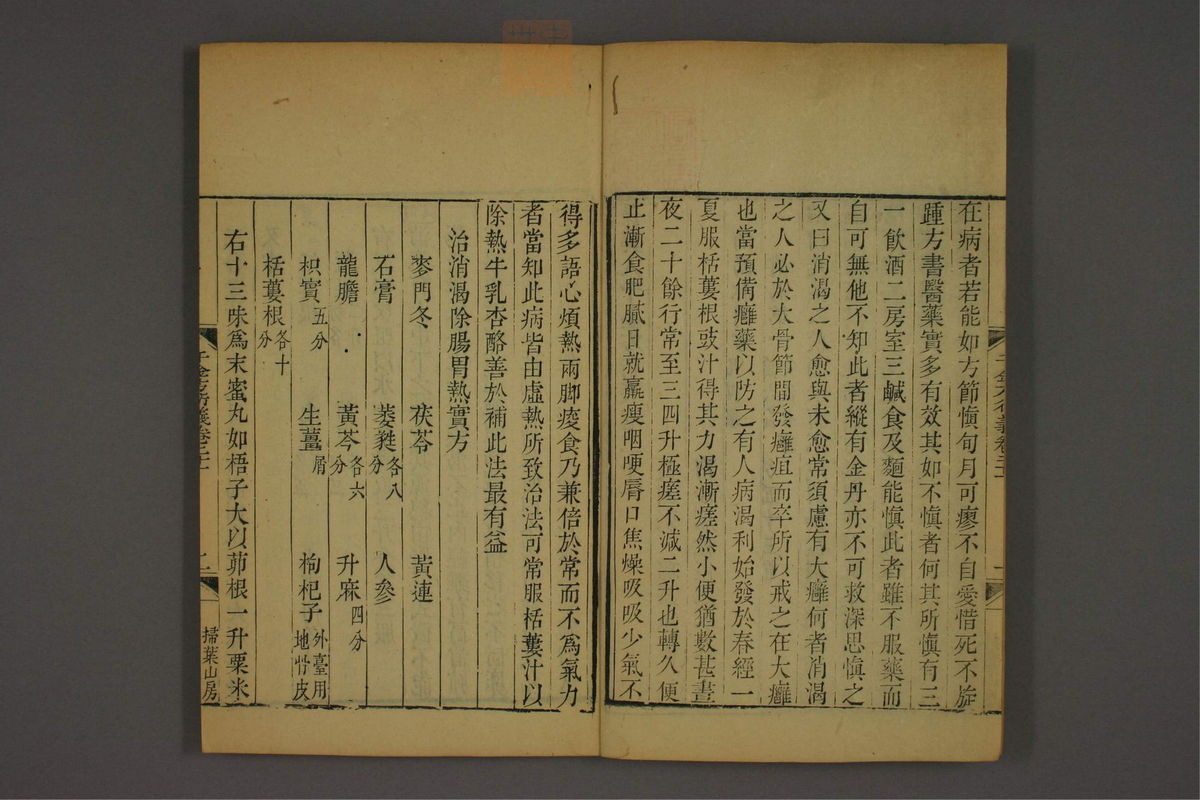 在病者若能如方節愼旬月可瘳不自愛惜死不旋
踵方書醫藥實多有效其如不愼者何其所愼有三
一飮酒二房室三鹹食及麵能愼此者雖不服藥而
自可無他不知此者縱有金丹亦不可救深思愼之
又曰消渴之人愈與未愈常須慮有大癰何者消渴
之人必於大骨節間發癰疽而卒所以戒之在大癰
也當預備癰藥以防之有人病渴利始發於春經一
夏服栝蔞根豉汁得其力渴漸瘥然小便猶數甚晝
夜二十餘行常至三四升極瘥不減二升也轉久便
止漸食肥膩日就羸瘦咽哽脣口焦燥吸吸少氣不
得多語心煩熱兩脚痠食乃兼倍於常而不爲氣力
者當知此病皆由虛熱所致治法可常服栝蔞汁以
除熱牛乳杏酪善於補此法最有益
治消渴除腸胃熱實方
麥門冬 茯苓 黃連
石膏 萎蕤各八分 人參
龍膽 黃芩各六分 升麻四分
枳實五分 生薑屑 枸杞子外臺用地骨皮
栝蔞根各十分
右十三味爲末蜜丸如梧子大以茆根一升粟米
千金方衍義卷二十一 二 掃葉山房